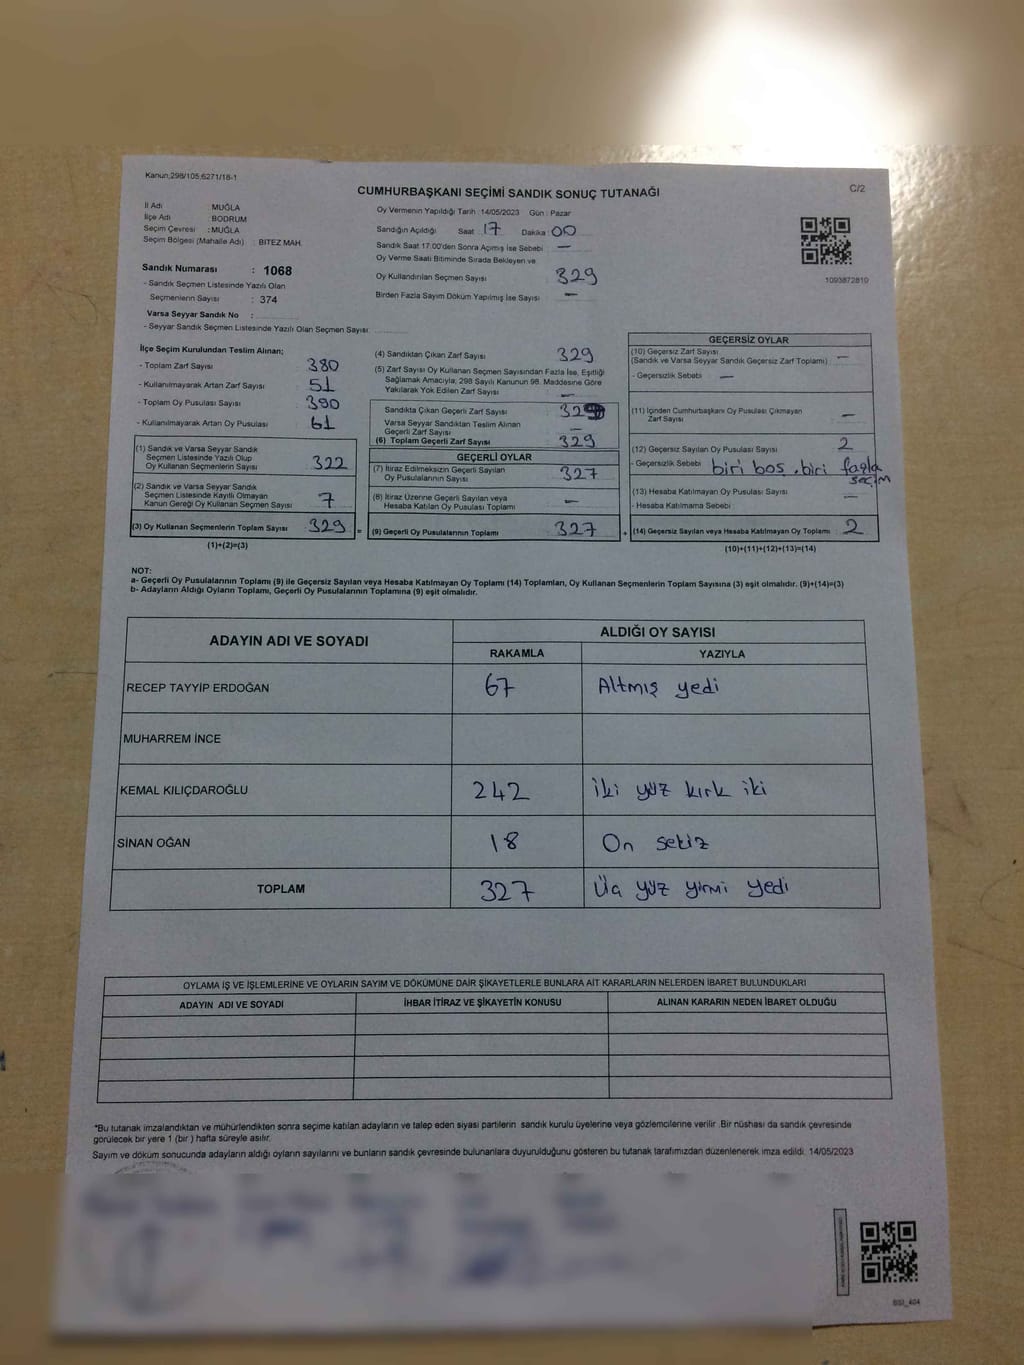 Kanun;298/105;6271/18-1
CUMHURBAŞKANI SEÇİMİ SANDIK SONUÇ TUTANAĞI
C/2
İl Adı MUĞLA
İlçe Adı BODRUM
Seçim Çevresi : MUĞLA
Seçim Bölgesi (Mahalle Adı) : BITEZ MAH.
Sandık Numarası : 1068
- Sandık Seçmen Listesinde Yazılı Olan
Seçmenlerin Sayısı : 374
Varsa Seyyar Sandık No :
- Seyyar Sandık Seçmen Listesinde Yazılı Olan Seçmen Sayısı
Oy Vermenin Yapıldığı Tarih :14/05/2023 Gün : Pazar
Sandığın Açıldığı Saat : 17 Dakika : 00
Sandık Saat 17:00'den Sonra Açımış İse Sebebi : —
Oy Verme Saati Bitiminde Sırada Bekleyen ve
Oy Kullandırılan Seçmen Sayısı 329
Birden Fazla Sayım Döküm Yapılmış İse Sayısı : —
1093872810
İlçe Seçim Kurulundan Teslim Alınan;
- Toplam Zarf Sayısı : 380
- Kullanılmayarak Artan Zarf Sayısı : 51
- Toplam Oy Pusulası Sayısı : 390
- Kullanılmayarak Artan Oy Pusulası : 61
(1) Sandık ve Varsa Seyyar Sandık
Seçmen Listesinde Yazılı Olup
Oy Kullanan Seçmenlerin Sayısı : 322
(2) Sandık ve Varsa Seyyar Sandık
Seçmen Listesinde Kayıtlı Olmayan
Kanun Gereği Oy Kullanan Seçmen Sayısı : 7
(3) Oy Kullanan Seçmenlerin Toplam Sayısı : 329
(1)+(2)=(3)
(4) Sandıktan Çıkan Zarf Sayısı : 329
(5) Zarf Sayısı Oy Kullanan Seçmen Sayısından Fazla İse, Eşitliği
Sağlamak Amacıyla; 298 Sayılı Kanunun 98. Maddesine Göre
Yakılarak Yok Edilen Zarf Sayısı : —
Sandıkta Çıkan Geçerli Zarf Sayısı : 32
Varsa Seyyar Sandıktan Teslim Alınan
Geçerli Zarf Sayısı : —
(6) Toplam Geçerli Zarf Sayısı : 329
GEÇERLİ OYLAR
(7) İtiraz Edilmeksizin Geçerli Sayılan
Oy Pusulalarının Sayısı : 327
(8) İtiraz Üzerine Geçerli Sayılan veya
Hesaba Katılan Oy Pusulası Toplamı : —
= (9) Geçerli Oy Pusulalarının Toplamı : 327
GEÇERSİZ OYLAR
(10) Geçersiz Zarf Sayısı
(Sandık ve Varsa Seyyar Sandık Geçersiz Zarf Toplamı) : —
- Geçersizlik Sebebi : —
(11) İçinden Cumhurbaşkanı Oy Pusulası Çıkmayan
Zarf Sayısı : —
(12) Geçersiz Sayılan Oy Pusulası Sayısı : 2
- Geçersizlik Sebebi : biri boş . biri fazla
seçim
(13) Hesaba Katılmayan Oy Pusulası Sayısı : —
- Hesaba Katılmama Sebebi :
+ (14) Geçersiz Sayılan veya Hesaba Katılmayan Oy Toplamı : 2
(10)+(11)+(12)+(13)=(14)
NOT:
a- Geçerli Oy Pusulalarının Toplamı (9) ile Geçersiz Sayılan veya Hesaba Katılmayan Oy Toplamı (14) Toplamları, Oy Kullanan Seçmenlerin Toplam Sayısına (3) eşit olmalıdır. (9)+(14)=(3)
b- Adayların Aldığı Oyların Toplamı, Geçerli Oy Pusulalarının Toplamına (9) eşit olmalıdır.
ADAYIN ADI VE SOYADI ALDIĞI OY SAYISI
RAKAMLA YAZIYLA
RECEP TAYYİP ERDOĞAN 67 Altmış yedi
MUHARREM İNCE
KEMAL KILIÇDAROĞLU 242 iki yüz kırk iki
SİNAN OĞAN 18 On sekiz
TOPLAM 327 Üç yüz yirmi yedi
OYLAMA İŞ VE İŞLEMLERİNE VE OYLARIN SAYIM VE DÖKÜMÜNE DAİR ŞİKAYETLERLE BUNLARA AİT KARARLARIN NELERDEN İBARET BULUNDUKLARI
ADAYIN ADI VE SOYADI İHBAR İTİRAZ VE ŞİKAYETİN KONUSU ALINAN KARARIN NEDEN İBARET OLDUĞU
*Bu tutanak imzalandıktan ve mühürlendikten sonra seçime katılan adayların ve talep eden siyasi partilerin sandık kurulu üyelerine veya gözlemcilerine verilir .Bir nüshası da sandık çevresinde
görülecek bir yere 1 (bir ) hafta süreyle asılır.
Sayım ve döküm sonucunda adayların aldığı oyların sayılarını ve bunların sandık çevresinde bulunanlara duyurulduğunu gösteren bu tutanak tarafımızdan düzenlenerek imza edildi. 14/05/2023
BSI_404